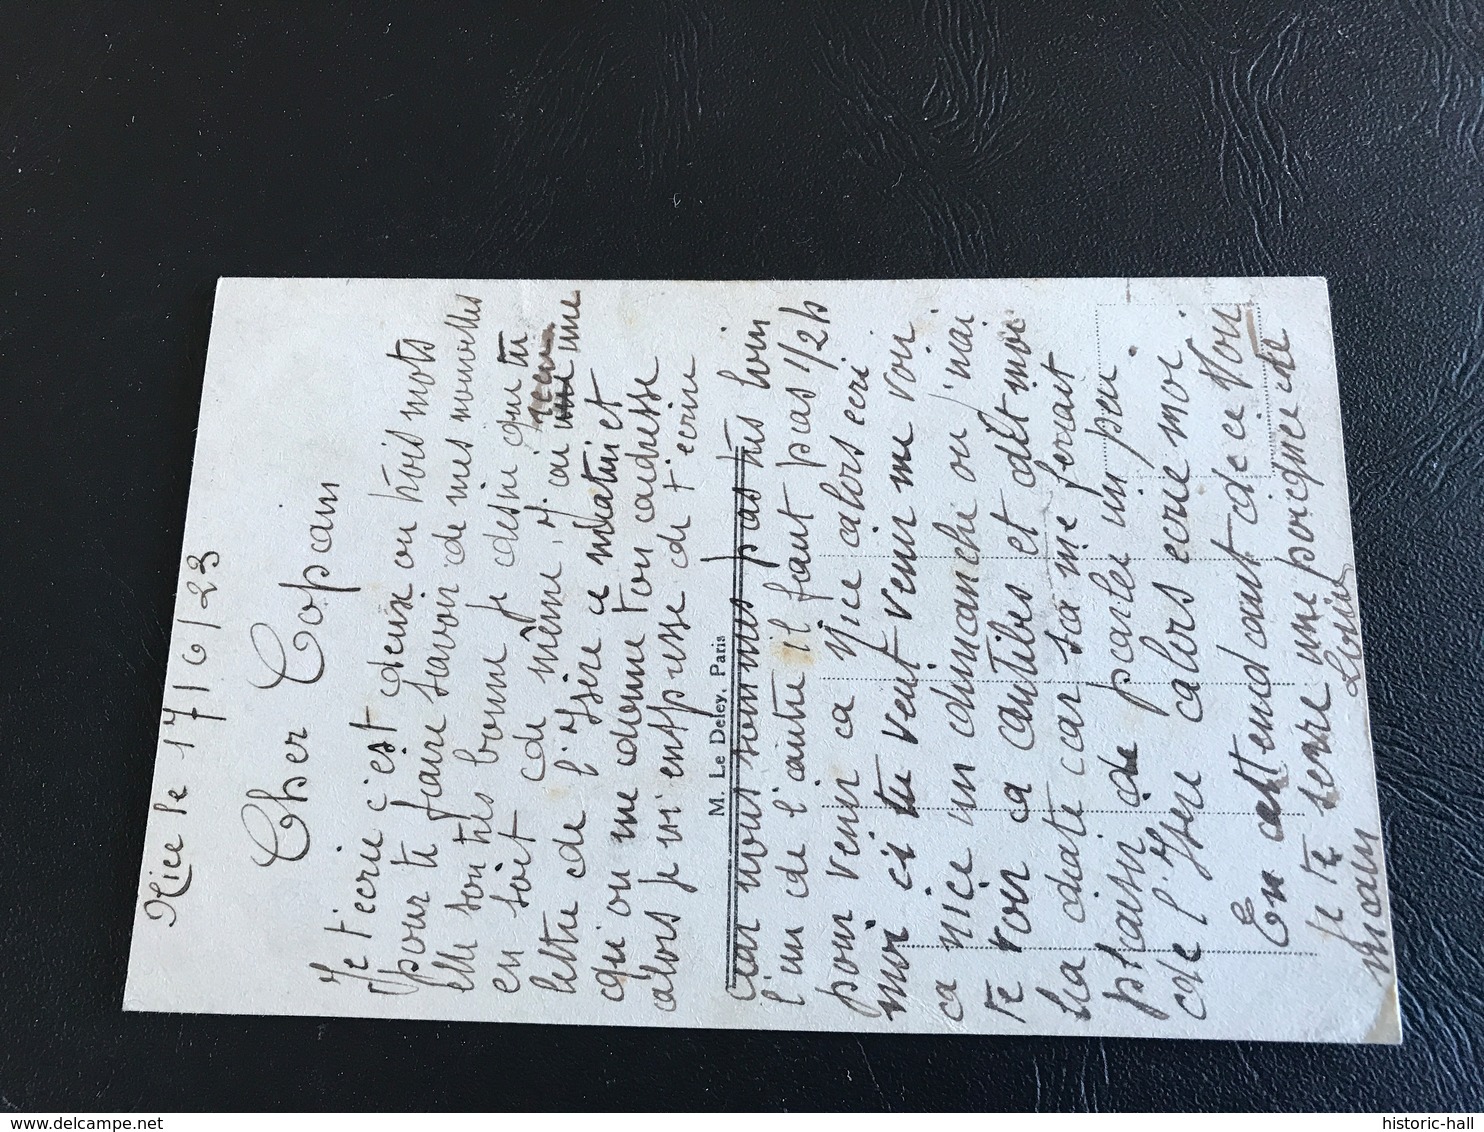 Nice le 17/6/23
Cher Copain
Je t'ecrie c'est deux ou trois mots
pour te faire savoir de mes nouvelles
elle son très bonne je desire que tu
en soit de même, j'ai me
lettre de l'Isère a matin et
qui on me donne ton cadresse
alors je m'enspresse de t'ecrire
M. Le Deley, Paris
car nous sommes pas très loin
l'un de l'autre il faut pas 1/2 h
pour venir ca Nice calors ecri
moi ci tu veut venir me voir
ca nice un dimanche ou j'irai
te voir a cantibes et dit moi
la date car sa me ferait
plaisir de parler un peu
de l'Isère calors ecrie moi
En cattendcant de ce voir
Je te serre une poicgnée de
main Louis
historic-hall
delcampe.net